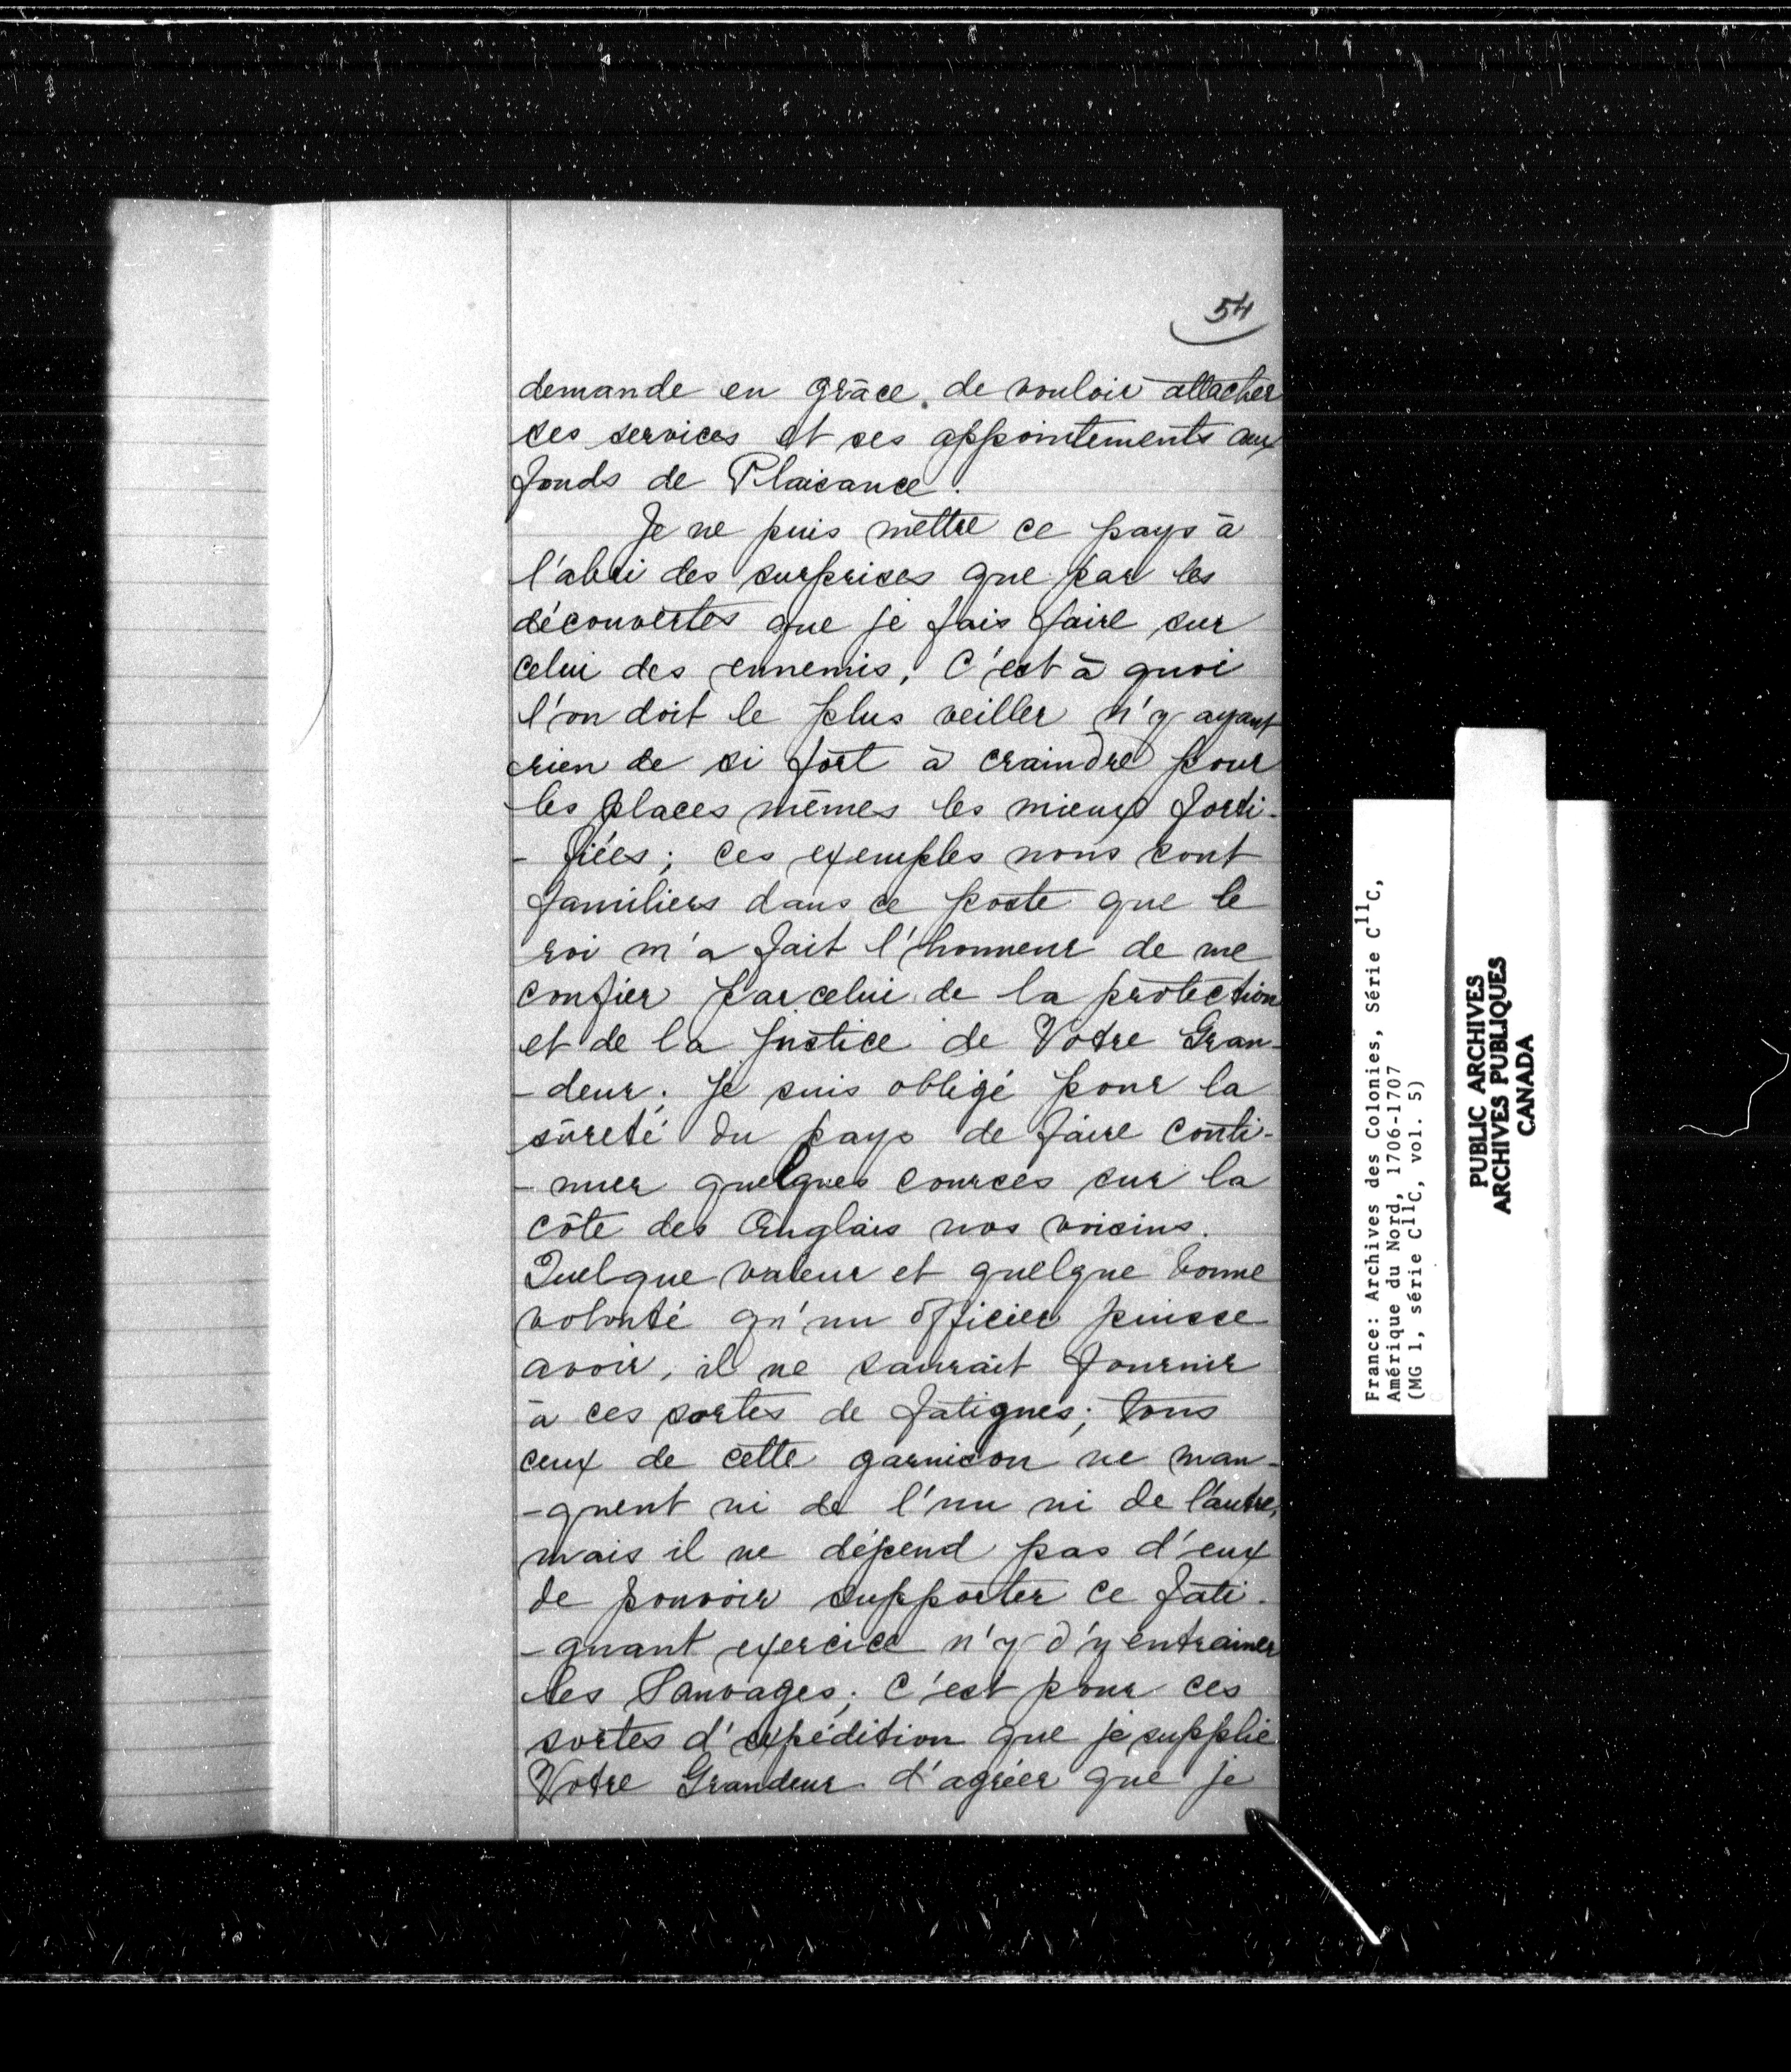 54
demande en grâce de vouloir attacher
ses services et ses appointements aux
fonds de Plaisance.
Je ne puis mettre ce pays à
l'abri des surprises que par les
découvertes que je fais faire sur
celui des ennemis, C'est à quoi
l'on doit le plus veiller n'y ayant
rien de si fort à craindre pour
les places mêmes les mieux forti-
-fiées; ces exemples nous sont
familiers dans ce poste que le
roi m'a fait l'honneur de me
confier par celui de la protection
et de la justice de Votre Gran-
-deur. Je suis obligé pour la
sûreté du pays de faire conti-
-nuer quelques courses sur la
côte des Anglais nos voisins.
Quelque valeur et quelque bonne
volonté qu'un officier puisse
avoir, il ne saurait fournir
à ces sortes de fatigues; tous
ceux de cette garnison ne man-
-quent ni de l'un ni de l'autre,
mais il ne dépend pas d'eux
de pouvoir supporter ce fati-
-guant exercice n'y d'y entrainer
les Sauvages; C'est pour ces
sortes d'expédition que je supplie
Votre Grandeur d'agréer que je
France: Archives des Colonies, Série C11C,
Amérique du Nord, 1706-1707
(MG 1, série C11C, vol. 5)
PUBLIC ARCHIVES
ARCHIVES PUBLIQUES
CANADA